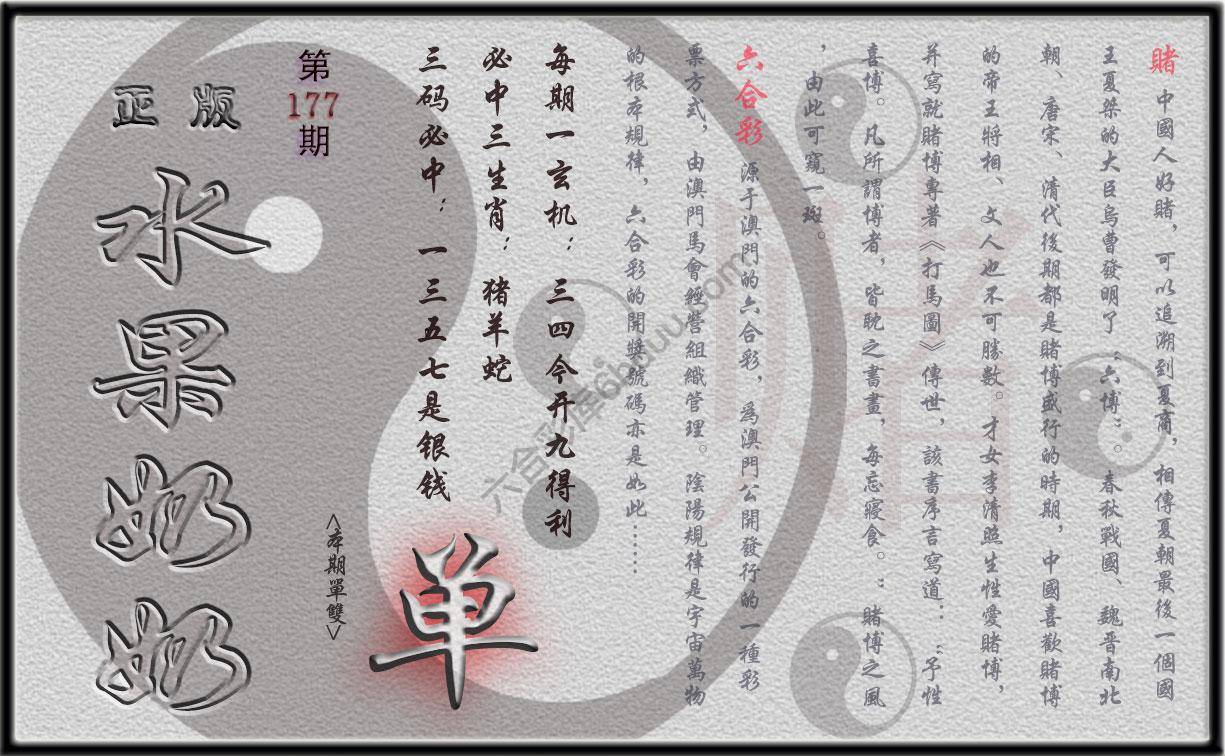 賭中國人好賭，可以追溯到夏商，相傳夏朝最後一個國
王夏桀的大臣烏曹發明了“六博”。春秋戰國、魏晋南北
朝、唐宋、清代後期都是賭博盛行的時期，中國喜歡賭博
的帝王將相、文人也不可勝數。才女李清照生性愛賭博，
并寫就賭博專著《打馬圖》傳世，該書序言寫道：“予性
喜博。凡所謂博者，皆耽之書畫，每忘寢食。：賭博之風
，由此可窺一斑。
六合彩源于澳門的六合彩，爲澳門公開發行的一種彩
票方式，由澳門馬會經營組織管理。陰陽規律是宇宙萬物
的根本規律，六合彩的開獎號碼亦是如此……
每期一玄机：三四今开九得利
必中三生肖：猪羊蛇
三码必中：一三五七是银钱
单
<本期單雙>
第177期
正版
水果奶奶
賭
六合彩库6huuu.com